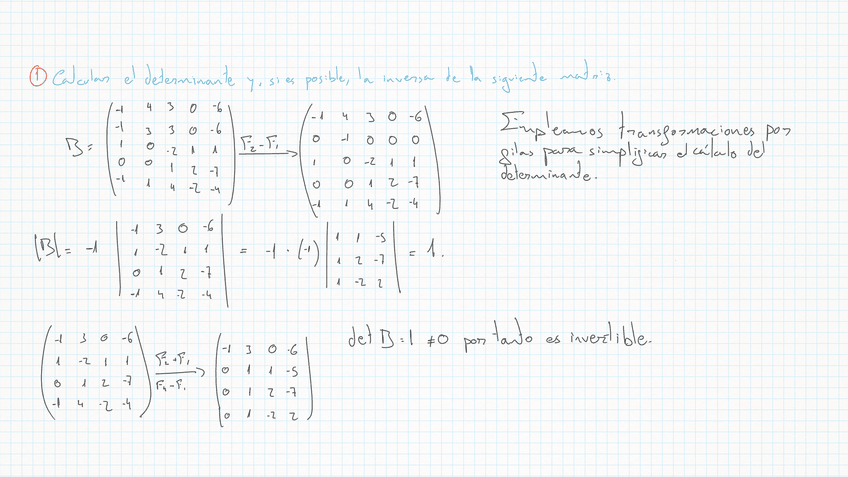 ① Calcular el determinante y, si es posible, la inversa de la siguiente matriz.
B = ( -1 4 3 0 -6 F₂-F₁ ( -1 4 3 0 -6
-1 3 3 0 -6 0 -1 0 0 0
1 0 -2 1 1 1 0 -2 1 1
0 0 1 2 -7 0 0 1 2 -7
-1 1 4 -2 -4 ) -1 1 4 -2 -4 )
Empleamos transformaciones por
filas para simplificar el cálculo del
determinante.
|B| = -1 | -1 3 0 -6 | = -1 · (-1) | 1 1 -5 | = 1.
1 -2 1 1 1 2 -7
0 1 2 -7 1 -2 2
-1 4 -2 -4
( -1 3 0 -6 F₂+F₁ ( -1 3 0 -6
1 -2 1 1 F₄-F₁ 0 1 1 -5
0 1 2 -7 0 1 2 -7
-1 4 -2 -4 ) 0 1 -2 2 )
det B = 1 ≠ 0 por tanto es invertible.